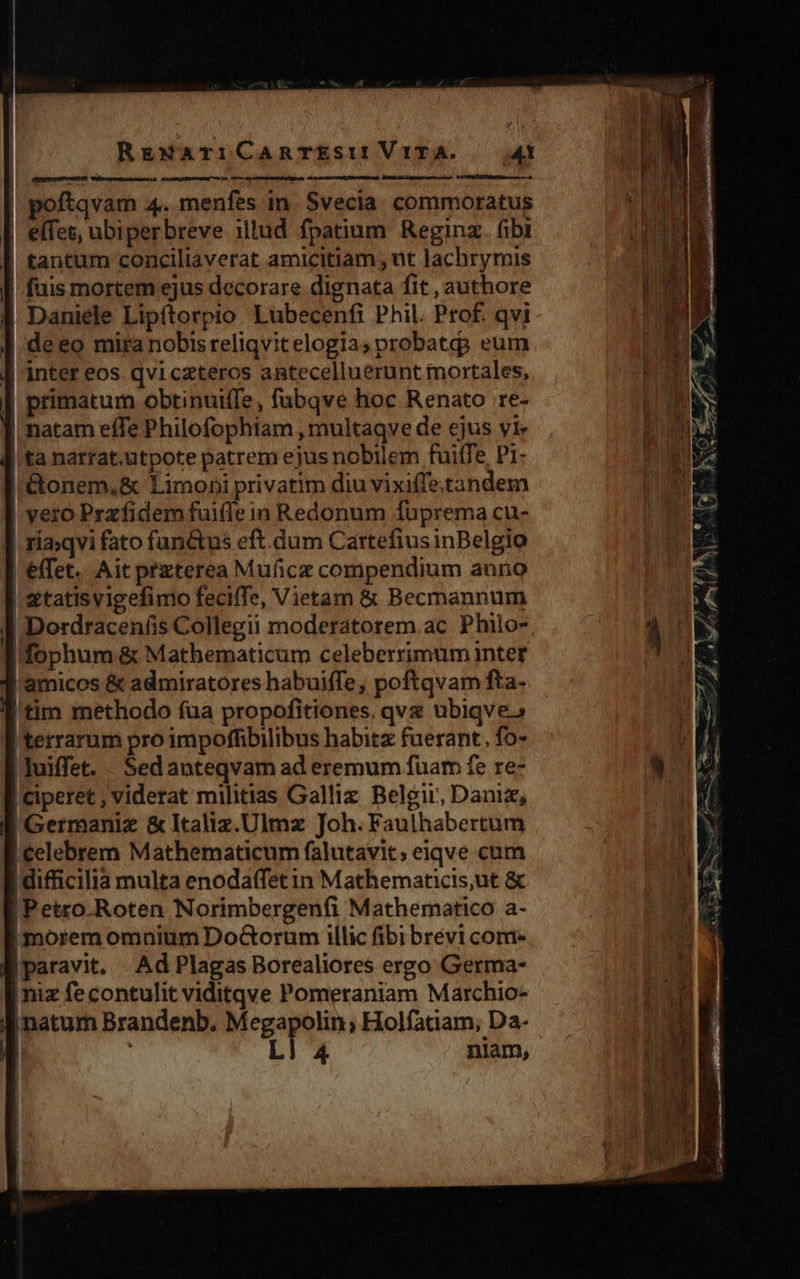 RENATI CARTESII VITA. 41
poſtqvam 4. menſes in Svecia commoratus
eſſet, ubi perbreve illud ſpatium Reginæ ſibi
tantum conciliaverat amicitiam, ut lachrymis
ſuis mortem ejus decorare dignata ſit, authore
Daniele Lipſtorpio Lubecenſi Phil. Prof. qvi
de eo mira nobis reliqvit elogia, probatq; eum
inter eos qvi cæteros antecelluerunt mortales,
primatum obtinuiſſe, ſubqve hoc Renato re-
natam eſſe Philoſophiam, multaqve de ejus vi-
ta narrat.utpote patrem ejus nobilem fuiſſe Pi-
ctonem,& Limoni privatim diu vixiſſe.tandem
vero Præſidem fuiſſe in Redonum ſuprema cu-
ria,qvi fato functus eſt dum Carteſius in Belgio
eſſet. Ait præterea Muſicæ compendium anno
ætatis vigeſimo feciſſe, Vietam & Becmannum
Dordracenſis Collegii moderatorem.ac Philo-
ſophum & Mathematicum celeberrimum inter
amicos & admiratores habuiſſe, poſtqvam ſta-
tim methodo ſua propoſitiones, qvæ ubiqve,
terrarum pro impoſſibilibus habitæ fuerant, ſo-
luiſſet. Sed anteqvam ad eremum ſuam ſe re-
ciperet, viderat militias Galliæ Belgii, Daniæ,
Germaniæ & Italiæ.Ulmæ Joh. Faulhabertum
celebrem Mathematicum ſalutavit, eiqve cum
difficilia multa enodaſſet in Mathematicis,ut &
Petro Roten Norimbergenſi Mathematico a-
morem omnium Doctorum illic ſibi brevi com-
paravit. Ad Plagas Borealiores ergo Germa-
niæ ſe contulit viditqve Pomeraniam Marchio-
natum Brandenb. Megapolin, Holſatiam, Da-
Ll 4 niam,